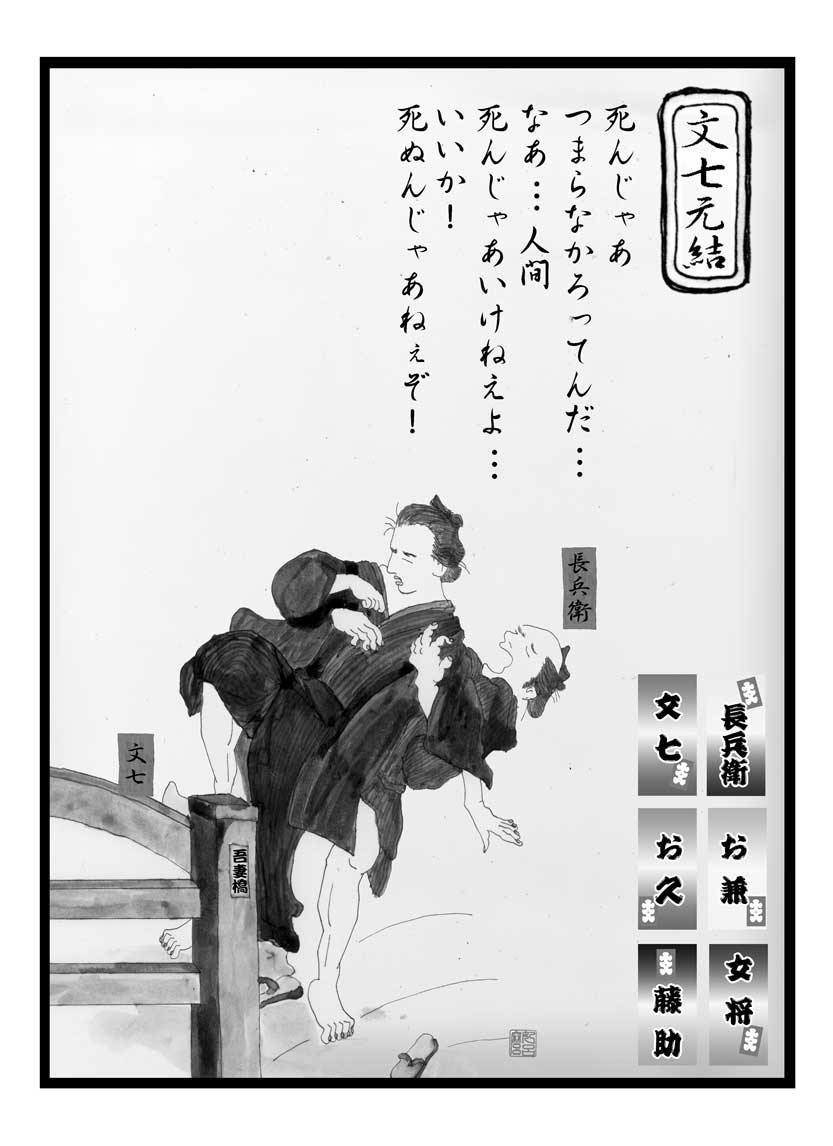 文七元結
死んじゃあ
つまらなかろってんだ…
なあ…人間
死んじゃあいけねえよ…
いいか!
死ぬんじゃあねぇぞ!
長兵衛
文七
吾妻橋
長兵衛
文七
お兼
お久
女将
藤助